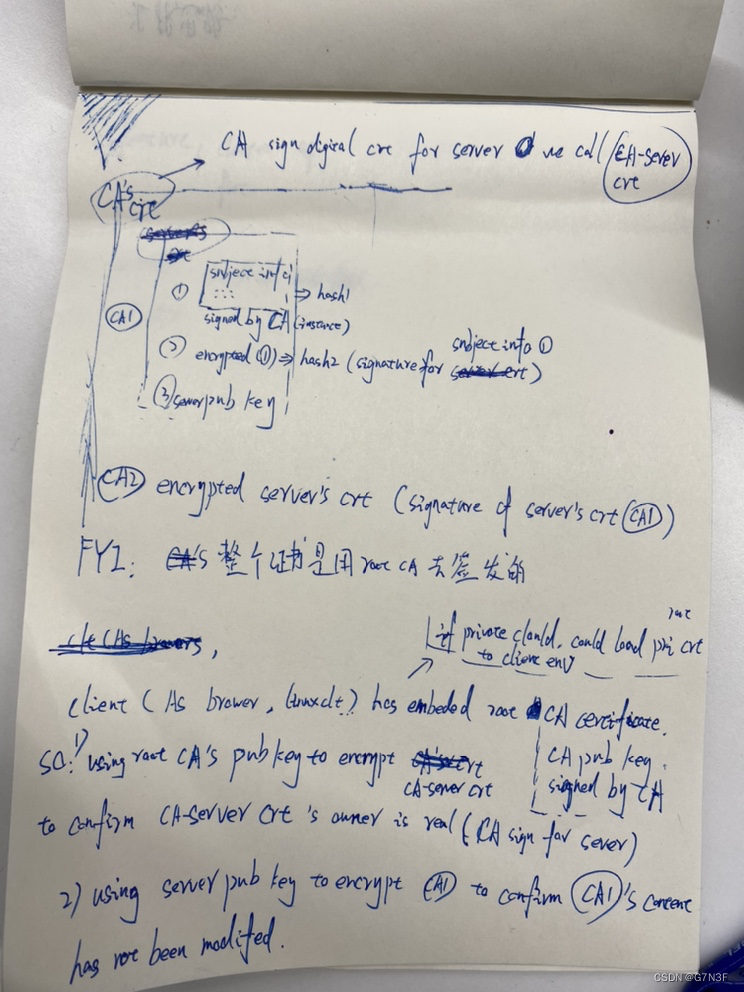 CA sign digital crt for server we call CA-server
crt
CA's
crt
subject info
① ⇒ hash1
signed by CA (instance)
CA1
subject info ①
② encrypted ① ⇒ hash2 (signature for server crt)
③ server pub key
CA2 encrypted server's crt (signature of server's crt CA1)
FYI: CA's 整个证书是用 root CA 去签发的
root
if private clould, could load pri crt
to client env
client (As brower, linux clt) has embeded root CA certificate.
SO: 1) using root CA's pub key to encrypt CA's crt
CA pub key
CA-server crt
signed by CA
to confirm CA-server crt's owner is real (CA sign for sever)
2) using server pub key to encrypt CA1 to confirm CA1's content
has not been modified.
CSDN @G7N3F